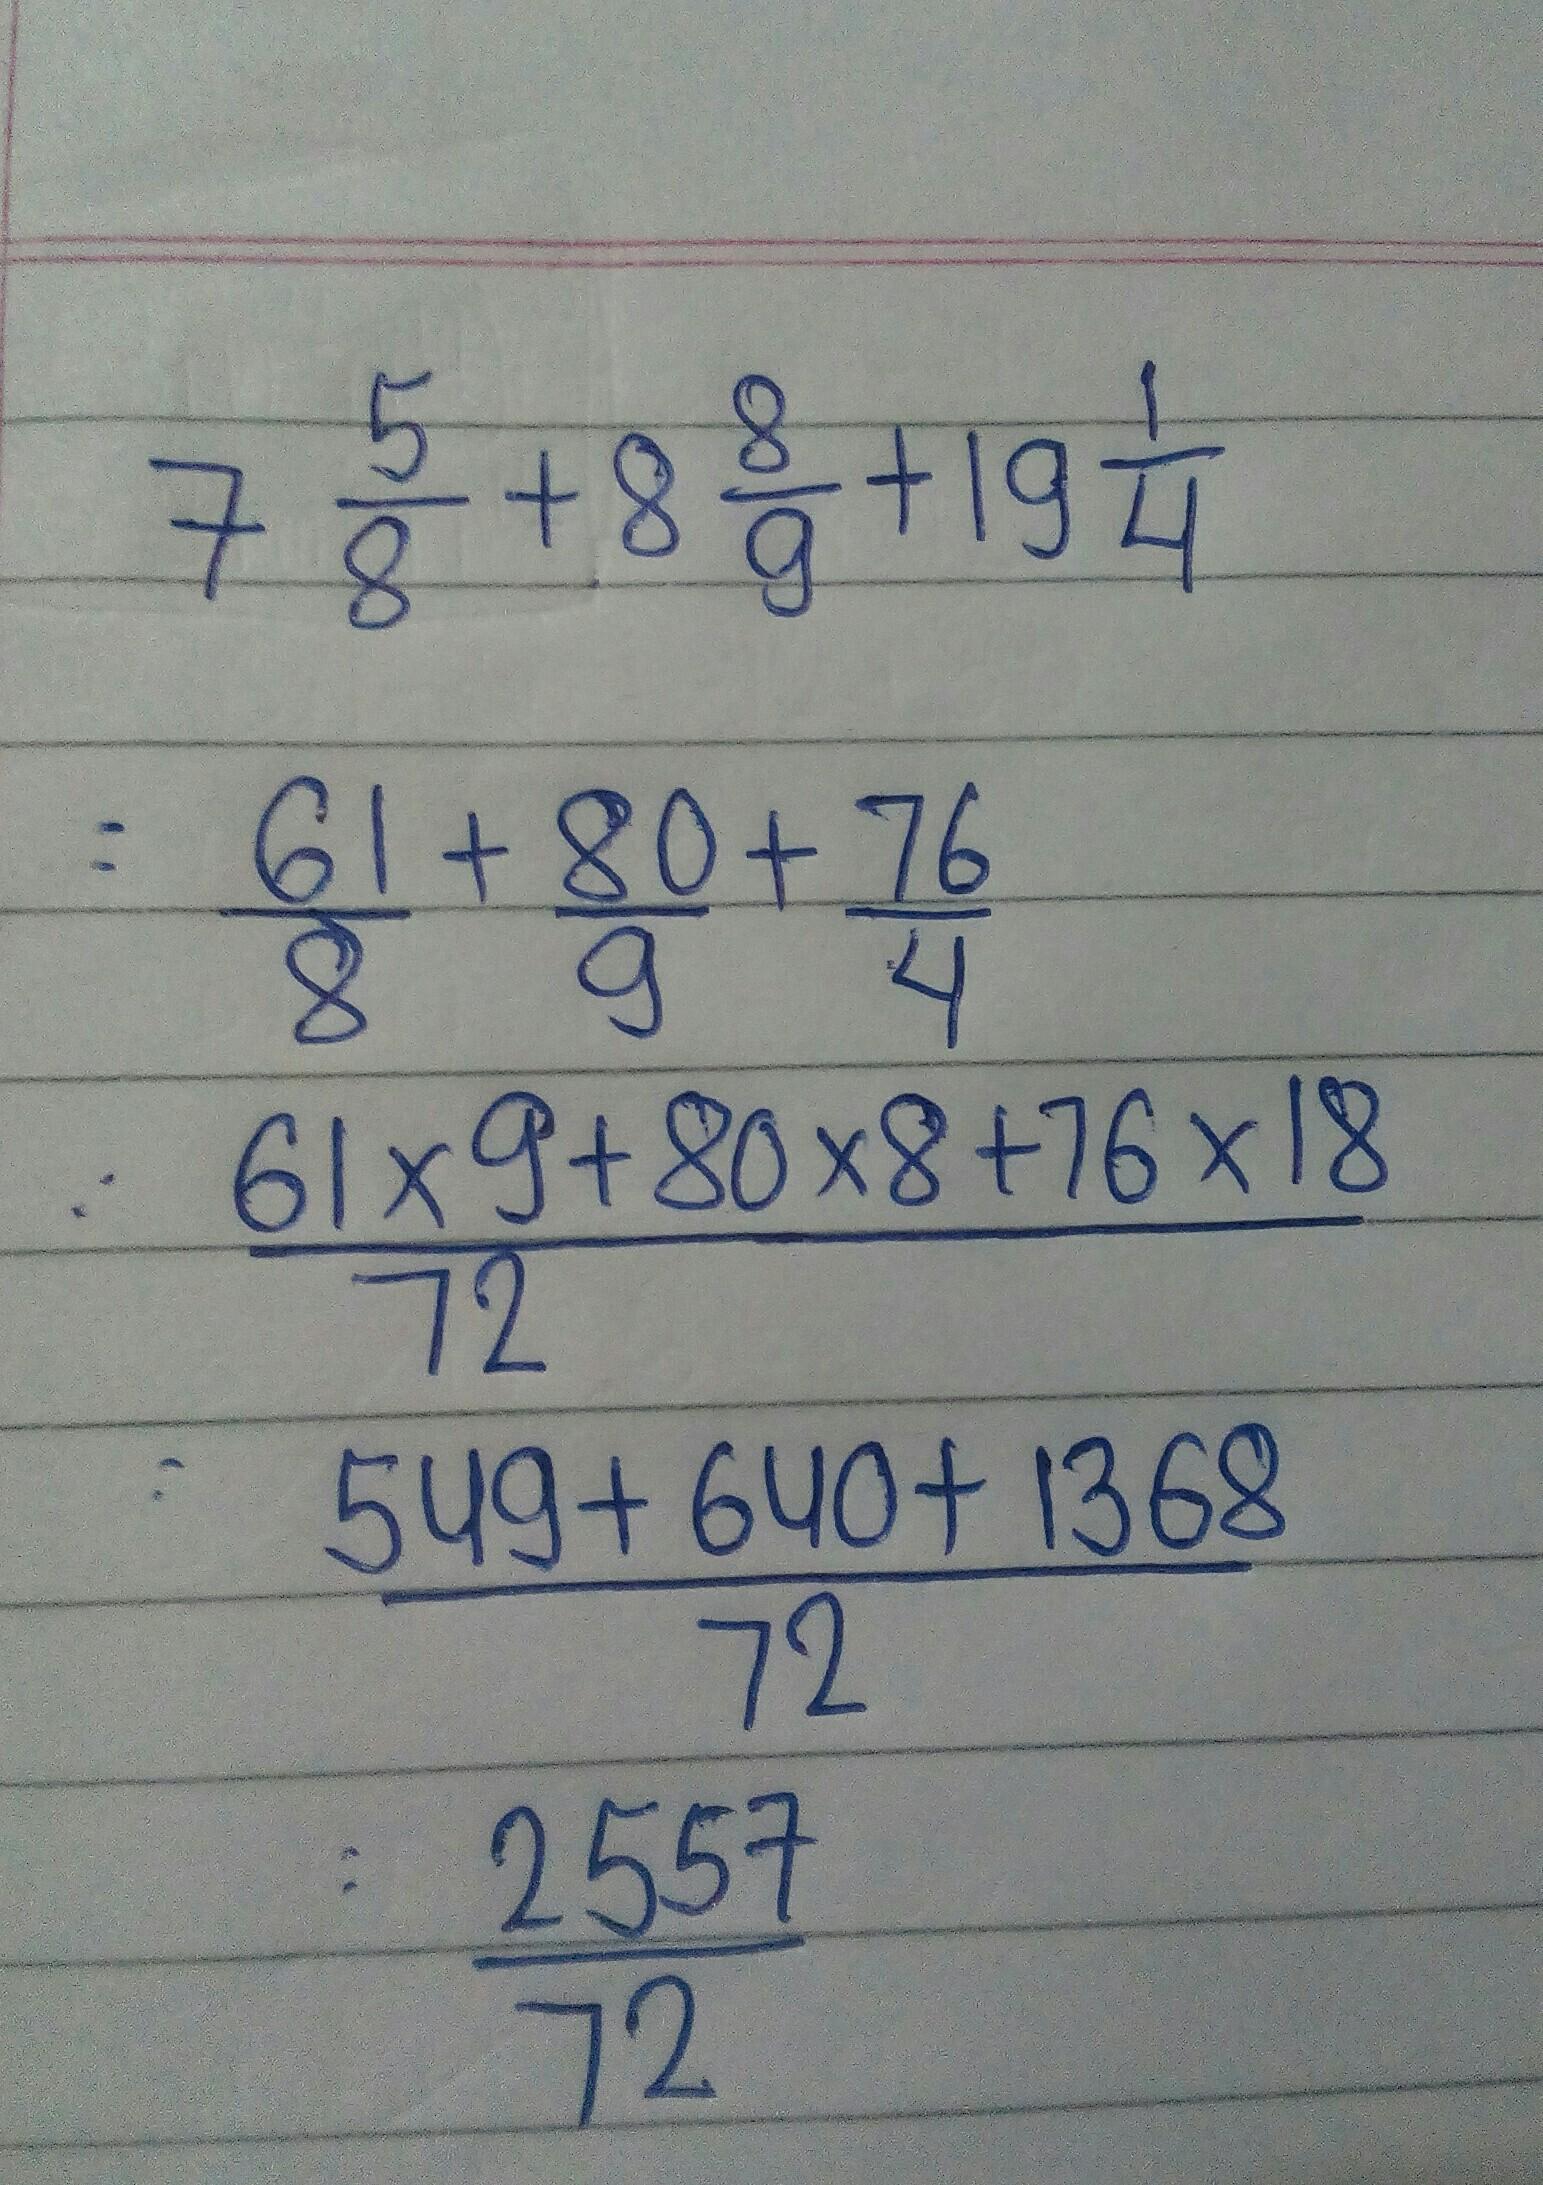 7 5/8 + 8 8/9 + 19 1/4
= 61/8 + 80/9 + 76/4
∴ 61×9+80×8+76×18 / 72
= 549+640+1368 / 72
= 2557/72